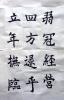 弱冠經營
四方逮乎
立年撫臨